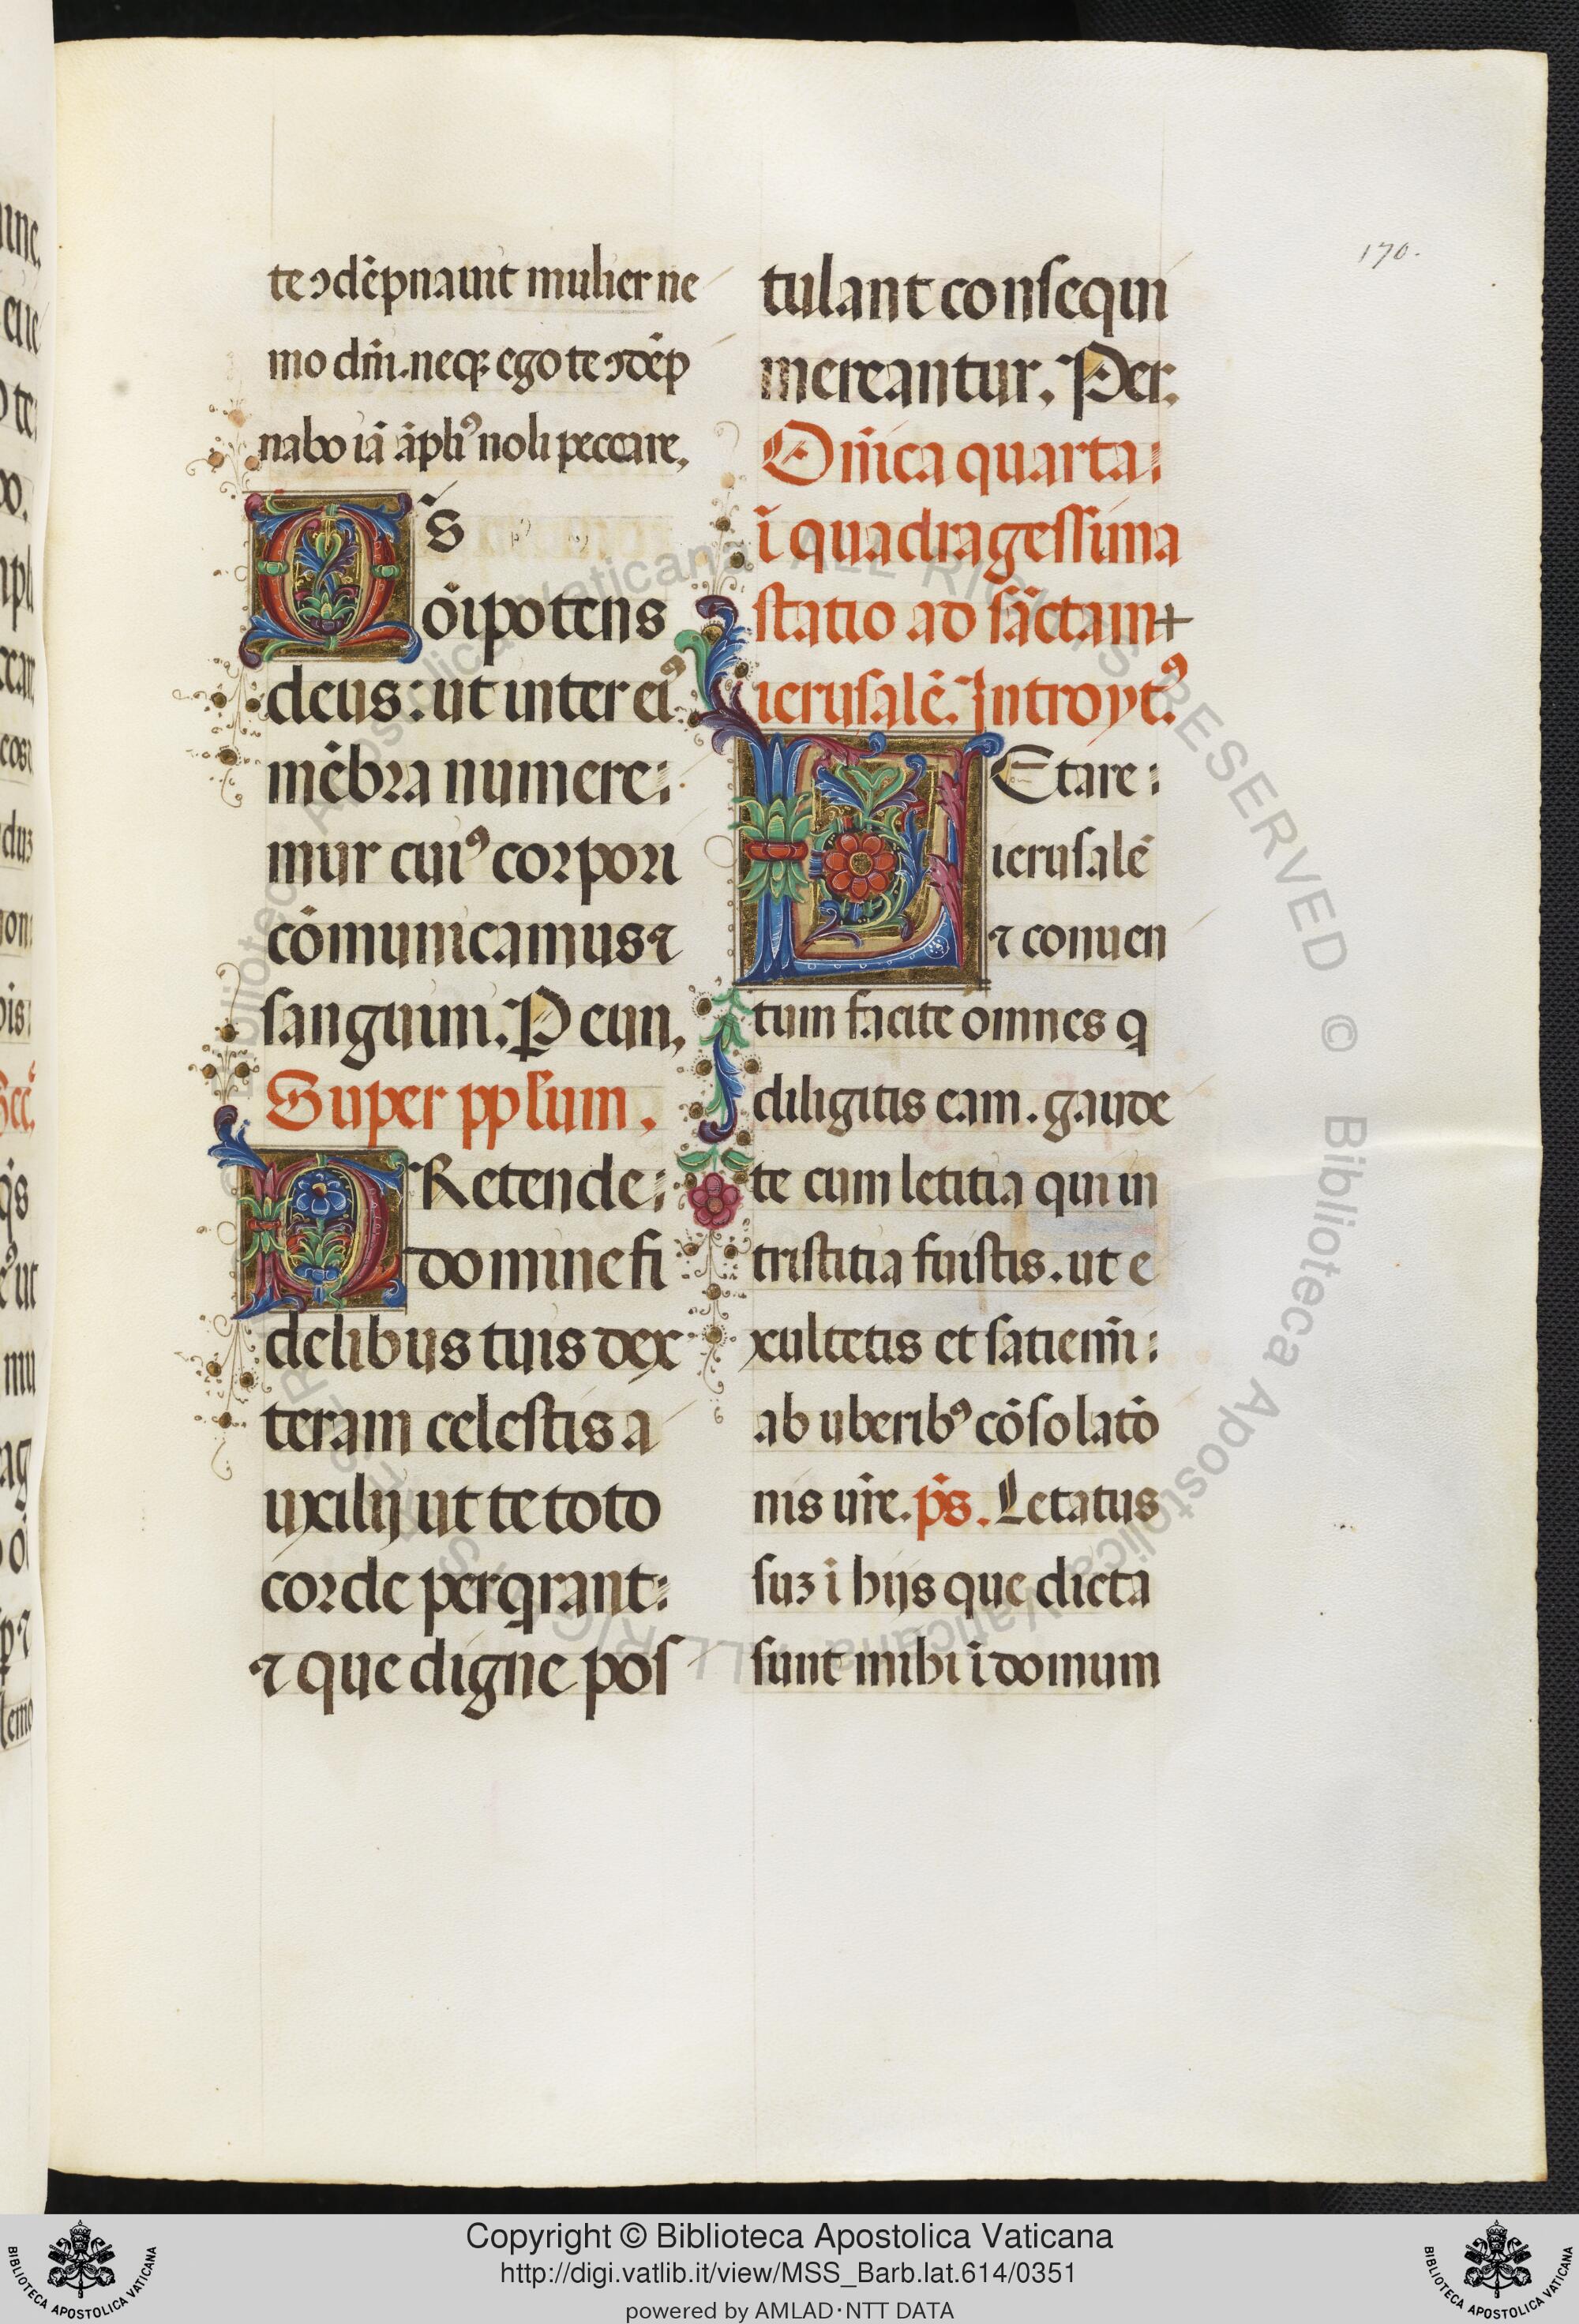 170.
te ɔdēpnauit mulier ne
mo dn̄i. neq; ego te ɔdēp
nabo iā āpliꝰ noli peccare.
Qs̄
oīpotens
deus: ut inter eiꝰ
mēbra numere:
mur cuiꝰ corpori
cōmunicamus ⁊
sanguini. P eun.
Super pplum.
PRetende:
domine fi
delibus tuis dex
teram celestis a
uxilij ut te toto
corde perqrant:
⁊ que digne pos
tulant consequi
mereantur. Per.
Dn̄ica quarta:
ī quadragessima
statio ad sāctam +
ierusalē. Introytꝰ.
LEtare:
ierusalē
⁊ conuen
tum facite omnes q
diligitis eam. gaude
te cum letitia qui in
tristitia fuistis. ut e
xultetis et satiemī:
ab uberibꝰ cōsolatō
nis ur̄e. ps̄. Letatus
suȝ ī hijs que dicta
sunt mihi ī domum
Copyright © Biblioteca Apostolica Vaticana
http://digi.vatlib.it/view/MSS_Barb.lat.614/0351
powered by AMLAD·NTT DATA
BIBLIOTECA APOSTOLICA VATICANA
BIBLIOTECA APOSTOLICA VATICANA